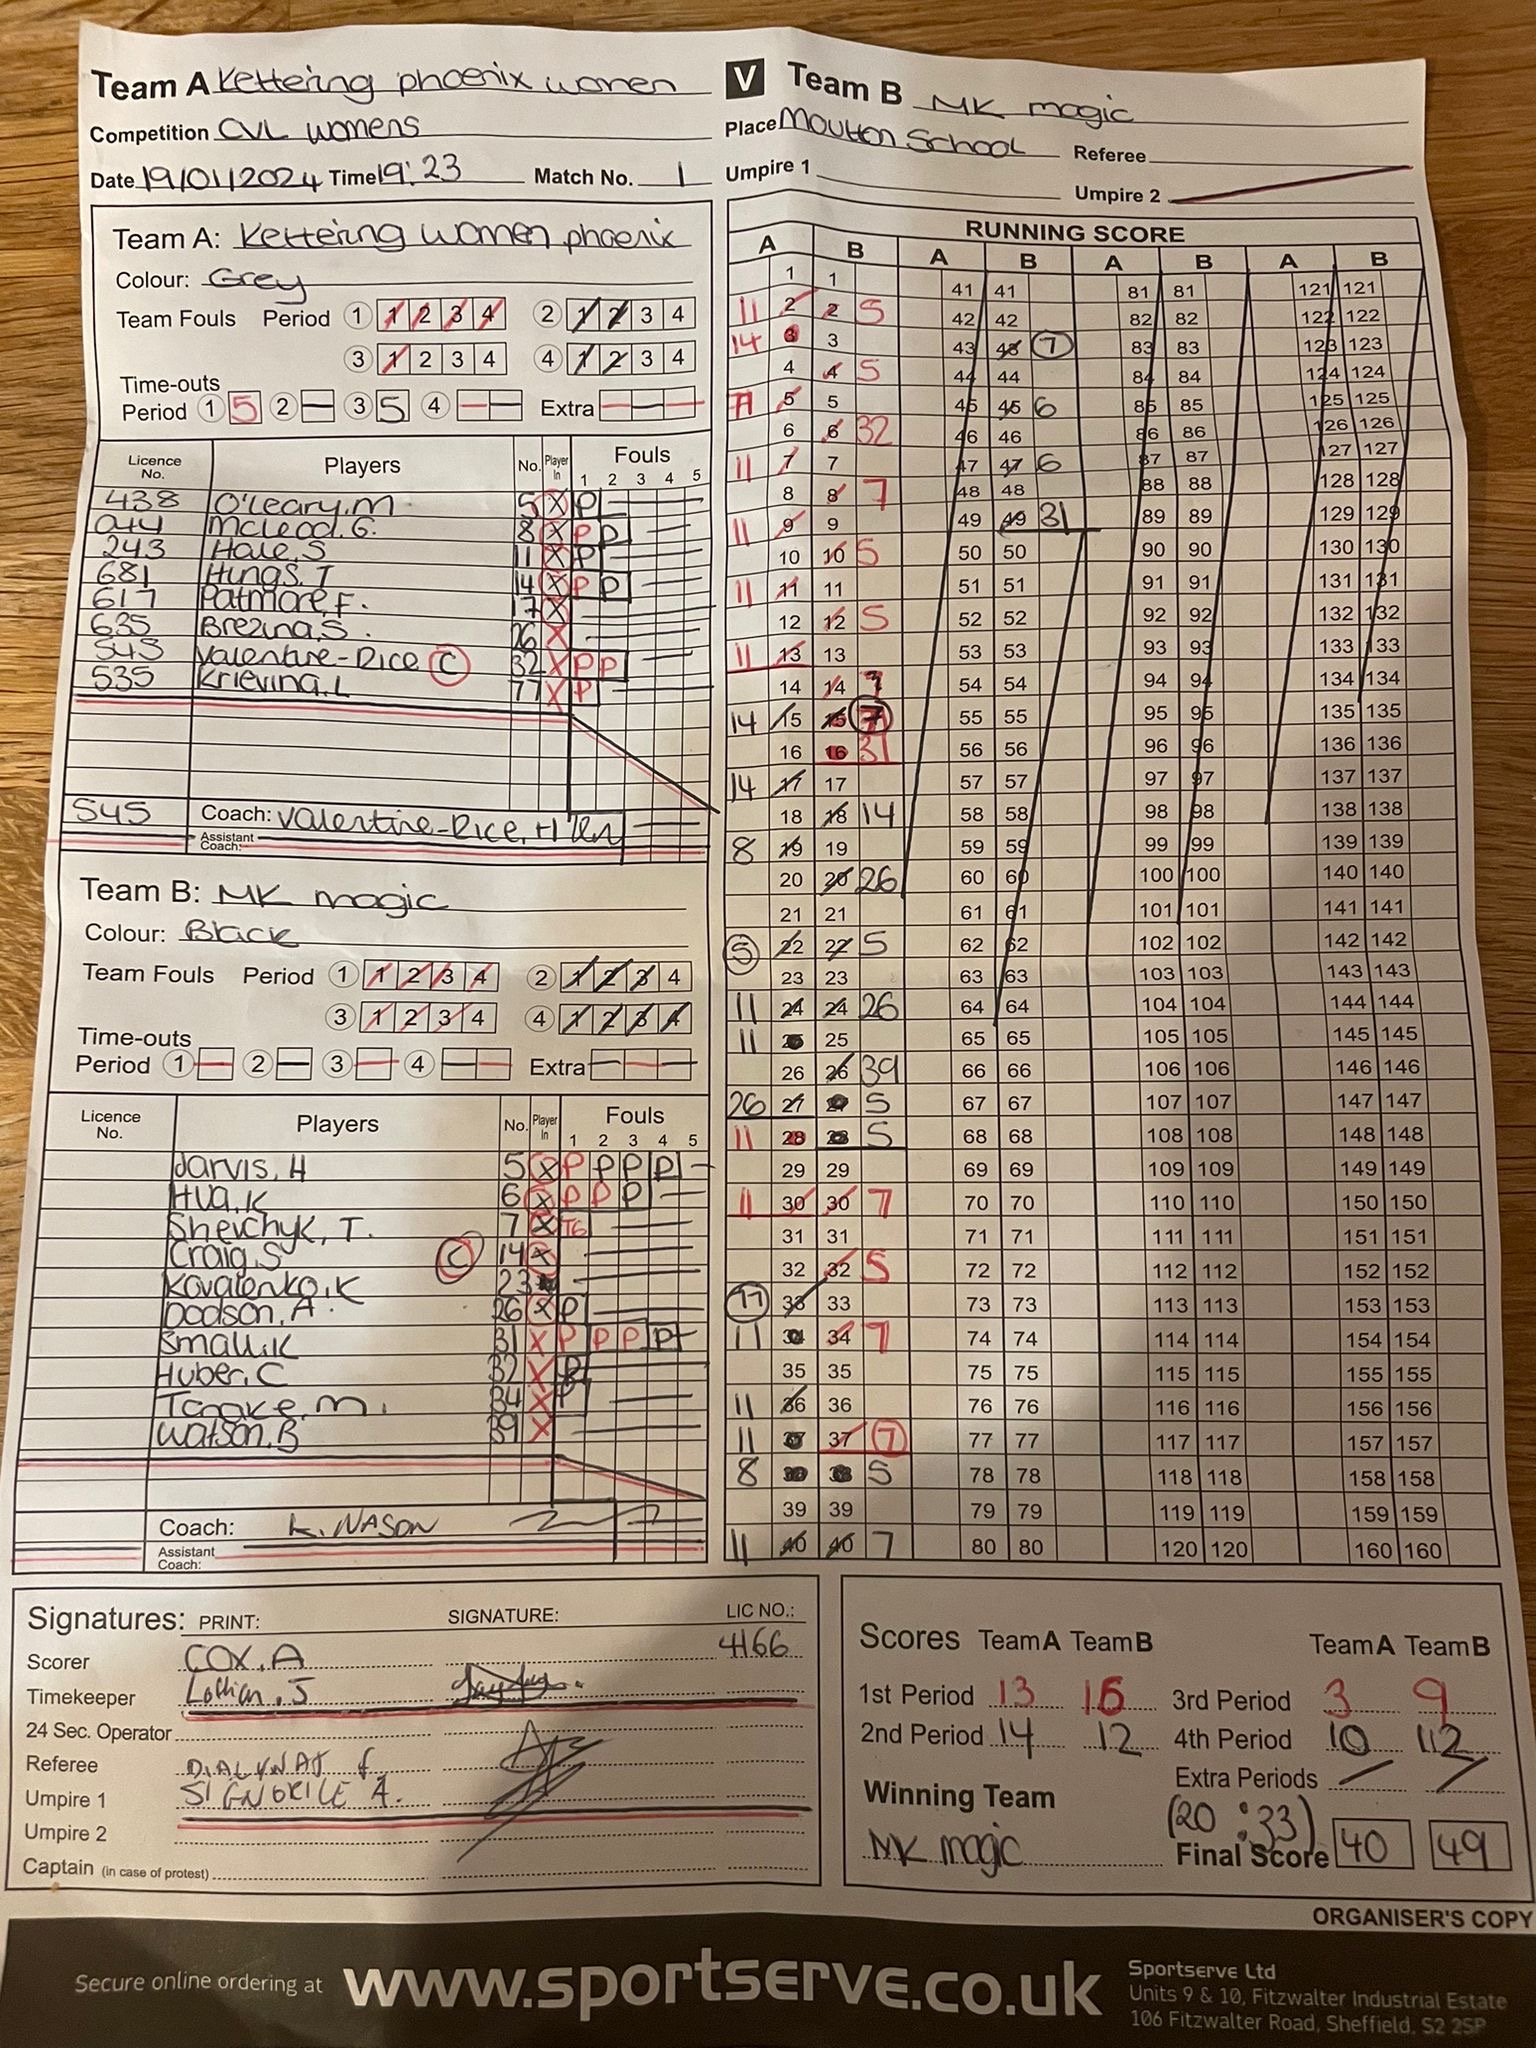 Team A Kettering phoenix women
V Team B MK magic
Competition CVL womens
Place Moulton School Referee
Date 19/01/2024 Time 19:23 Match No. 1
Umpire 1 Umpire 2
Team A: Kettering women phoenix
Colour: Grey
Team Fouls Period 1 1 2 3 4 2 1 2 3 4
3 1 2 3 4 4 1 2 3 4
Time-outs
Period 1 5 2 3 5 4 Extra
Licence No. Players No. Player In Fouls 1 2 3 4 5
438 O'Leary, M 5 X P
044 McLeod. G. 8 X P P
243 Hale, S 11 X P
681 Hings. T 14 X P P
617 Patmore, F. 17 X
635 Brezina, S. 26 X
545 Valentine-Rice C 32 X P P
535 Krievina, L 77 X P
545 Coach: Valentine-Rice, H
Assistant Coach:
Team B: MK magic
Colour: Black
Team Fouls Period 1 1 2 3 4 2 1 2 3 4
3 1 2 3 4 4 1 2 3 4
Time-outs
Period 1 2 3 4 Extra
Licence No. Players No. Player In Fouls 1 2 3 4 5
Jarvis, H 5 X P P P P
Hua, K 6 X P P P
Shevchyk, T. 7 X
Craig, S C 14 X
Kovalenko, K 23
Dodson, A. 26 X P
Small, K 31 X P P P P
Huber, C 32 X P
Tanake, M. 34 X P
Watson, B 39 X
Coach: K. NASON
Assistant Coach:
RUNNING SCORE
A B A B A B A B
1 1 41 41 81 81 121 121
11 2 2 5 42 42 82 82 122 122
14 3 3 43 43 7 83 83 123 123
4 4 5 44 44 84 84 124 124
5 5 45 45 6 85 85 125 125
6 6 32 46 46 86 86 126 126
11 7 7 47 47 6 87 87 127 127
8 8 7 48 48 88 88 128 128
11 9 9 49 49 31 89 89 129 129
10 10 5 50 50 90 90 130 130
11 11 11 51 51 91 91 131 131
12 12 5 52 52 92 92 132 132
11 13 13 53 53 93 93 133 133
14 14 54 54 94 94 134 134
14 15 15 7 55 55 95 95 135 135
16 16 31 56 56 96 96 136 136
14 17 17 57 57 97 97 137 137
18 18 14 58 58 98 98 138 138
8 19 19 59 59 99 99 139 139
20 20 26 60 60 100 100 140 140
21 21 61 61 101 101 141 141
5 22 22 5 62 62 102 102 142 142
23 23 63 63 103 103 143 143
11 24 24 26 64 64 104 104 144 144
11 25 25 65 65 105 105 145 145
26 26 39 66 66 106 106 146 146
26 27 27 5 67 67 107 107 147 147
11 28 28 5 68 68 108 108 148 148
29 29 69 69 109 109 149 149
11 30 30 7 70 70 110 110 150 150
31 31 71 71 111 111 151 151
32 32 5 72 72 112 112 152 152
77 33 33 73 73 113 113 153 153
11 34 34 7 74 74 114 114 154 154
35 35 75 75 115 115 155 155
11 36 36 76 76 116 116 156 156
11 37 37 7 77 77 117 117 157 157
8 38 38 5 78 78 118 118 158 158
39 39 79 79 119 119 159 159
11 40 40 7 80 80 120 120 160 160
Signatures: PRINT: SIGNATURE: LIC NO.:
Scorer COX. A 4166
Timekeeper Lothian. J
24 Sec. Operator
Referee
Umpire 1 SIGNORILE A.
Umpire 2
Captain (in case of protest)
Scores Team A Team B Team A Team B
1st Period 13 16 3rd Period 3 9
2nd Period 14 12 4th Period 10 12
Extra Periods / /
Winning Team (20 : 33)
MK magic Final Score 40 49
ORGANISER'S COPY
Secure online ordering at www.sportserve.co.uk
Sportserve Ltd
Units 9 & 10, Fitzwalter Industrial Estate
106 Fitzwalter Road, Sheffield, S2 2SP